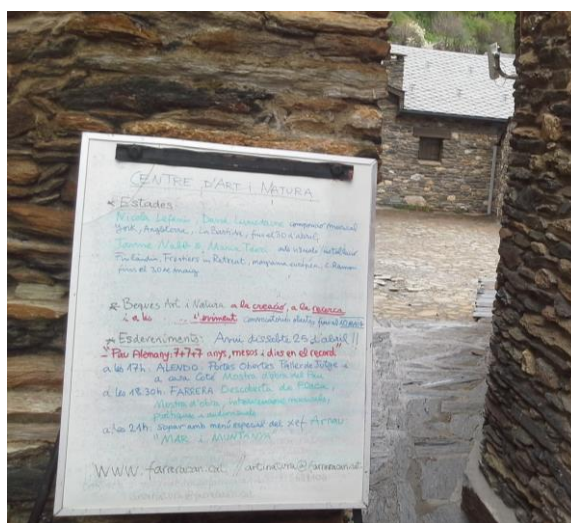 CENTRE D'ART I NATURA
* Estades:
Nicola Lefanu, David Lumsdaine composició musical
York, Anglaterra, La Bastida, fins el 30 d'abril,
Mària Teeri arts visuals instal·lació
Finlàndia, Frontiers in Retreat, programa europeu, C. Ramon
fins el 30 de maig
* Beques Art i Natura a la creació, a la recerca
i a les convocatòria oberta fins el
* Esdeveniments: Avui dissabte 25 d'abril!!
- "Pau Alemany: 7+7+7 anys, mesos i dies en el record"
a les 17h. ALENDO. Portes Obertes Taller de Jutge i
a casa Coté Mostra d'obra del Pau
a les 18.30h. FARRERA Descoberta de Placa,
Mostra d'obra, intervencions musicals,
poètiques i audiovisuals
a les 21h. sopar amb menú especial del xef Arnau
"MAR i MUNTANYA"
www.farreracan.cat // artinatura@farreracan.cat